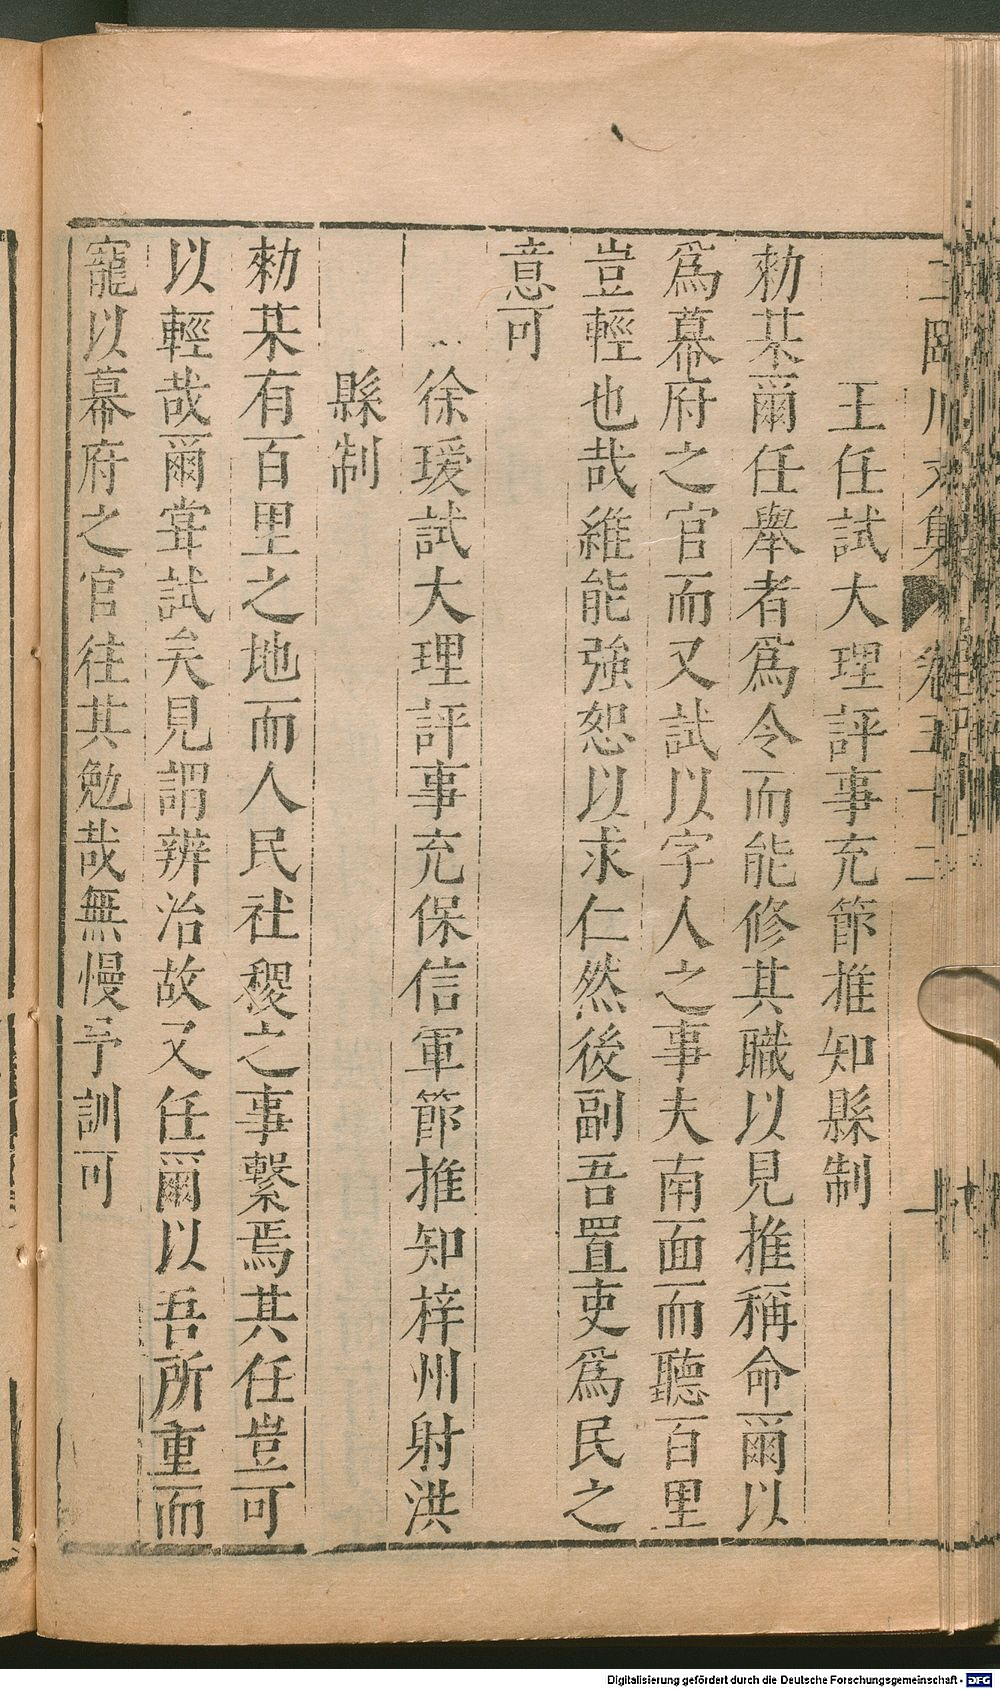 王任試大理評事充節推知縣制
勑某爾任舉者爲令而能修其職以見推稱命爾以
爲幕府之官而又試以字人之事夫南面而聽百里
豈輕也哉維能強恕以求仁然後副吾置吏爲民之
意可
徐瑗試大理評事充保信軍節推知梓州射洪
縣制
勑某有百里之地而人民社稷之事繫焉其任豈可
以輕哉爾甞試矣見謂辨治故又任爾以吾所重而
寵以幕府之官往其勉哉無慢予訓可
Digitalisierung gefördert durch die Deutsche Forschungsgemeinschaft - DFG